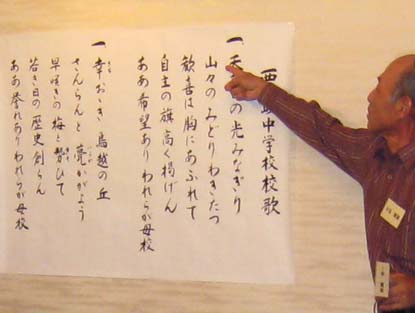 西 中学校校歌
一、天 の光みなぎり
山々のみどりわきたつ
歓喜は胸にあふれて
自主の旗高く掲げん
ああ希望あり われらが母校
一、幸おゝき 鳥越の丘
さんらんと 甍かがよう
早咲きの梅と競ひて
若き日の歴史創らん
ああ誉れあり われらが母校